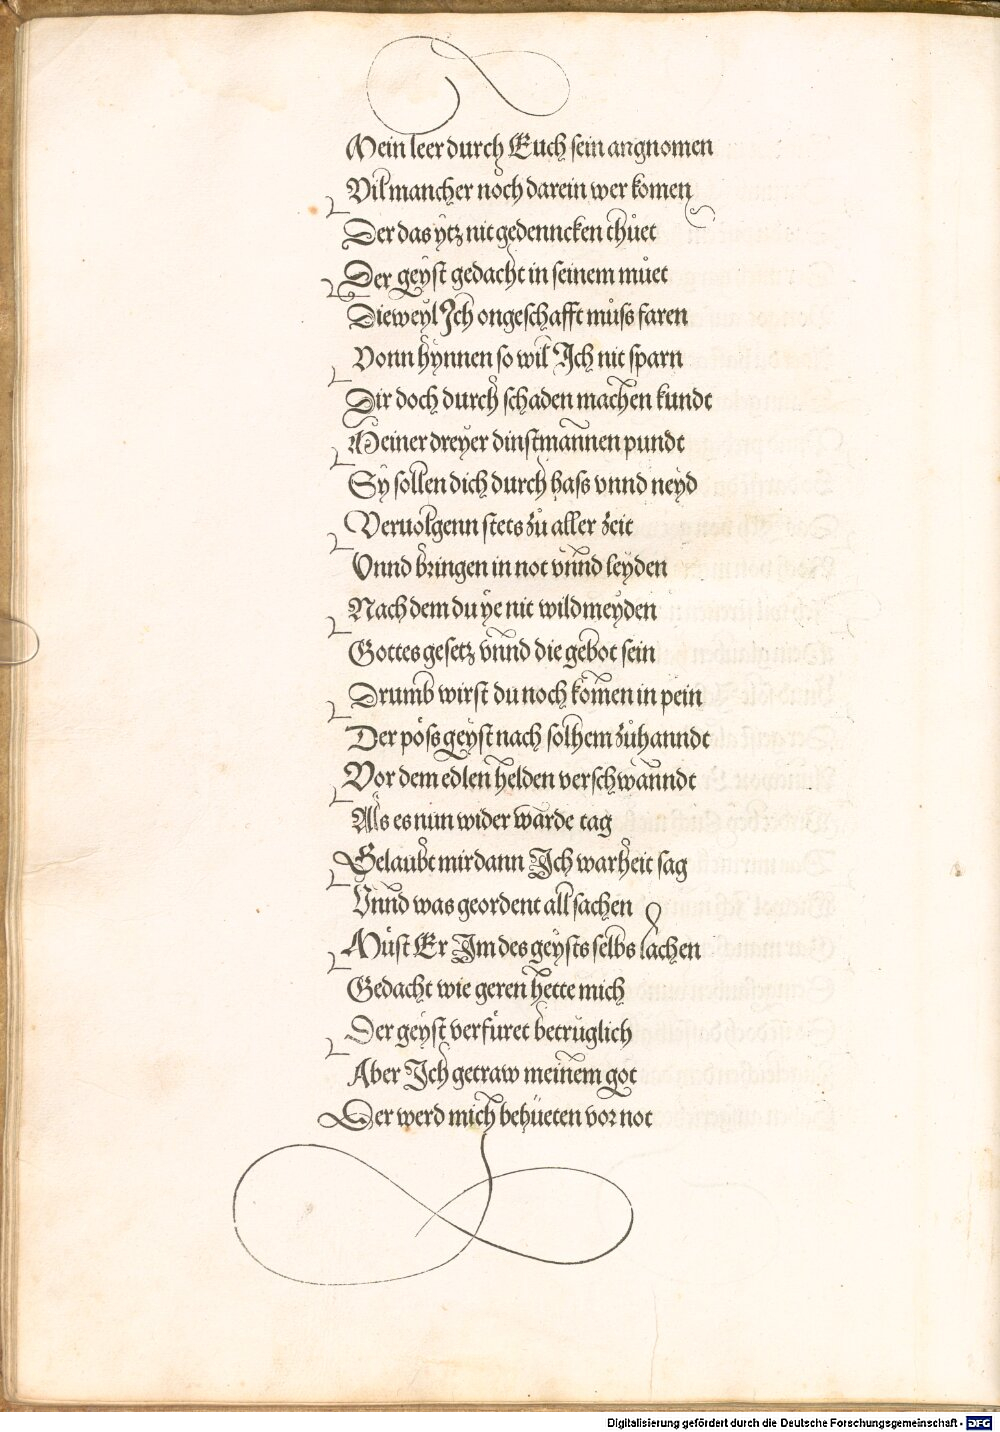 Mein leer durch Euch sein angnomen
Vil mancher noch darein wer komen
Der das ÿtz nit gedenncken thůet
Der geÿst gedacht in seinem můet
Dieweÿl Ich ongeschafft můſs faren
Vonn hÿnnen so wil Ich nit sparn
Dir doch durch schaden machen kundt
Meiner dreÿer dinstmannen pundt
Sÿ sollen dich durch haſs vnnd neÿd
Veruolgenn stets zů aller zeit
Vnnd bringen in not vnnd leÿden
Nach dem du ÿe nit wild meÿden
Gottes gesetz vnnd die gebot sein
Drumb wirst du noch komen in pein
Der pöſs geÿst nach solhem zůhanndt
Vor dem edlen helden verschwanndt
Als es nun wider warde tag
Gelaubt mir dann Ich warheit sag
Vnnd was geordent all sachen
Můst Er Im des geÿsts selbs lachen
Gedacht wie geren hette mich
Der geÿst verfüret betrüglich
Aber Ich getraw meinem got
Der werd mich behüeten vor not
Digitalisierung gefördert durch die Deutsche Forschungsgemeinschaft - DFG